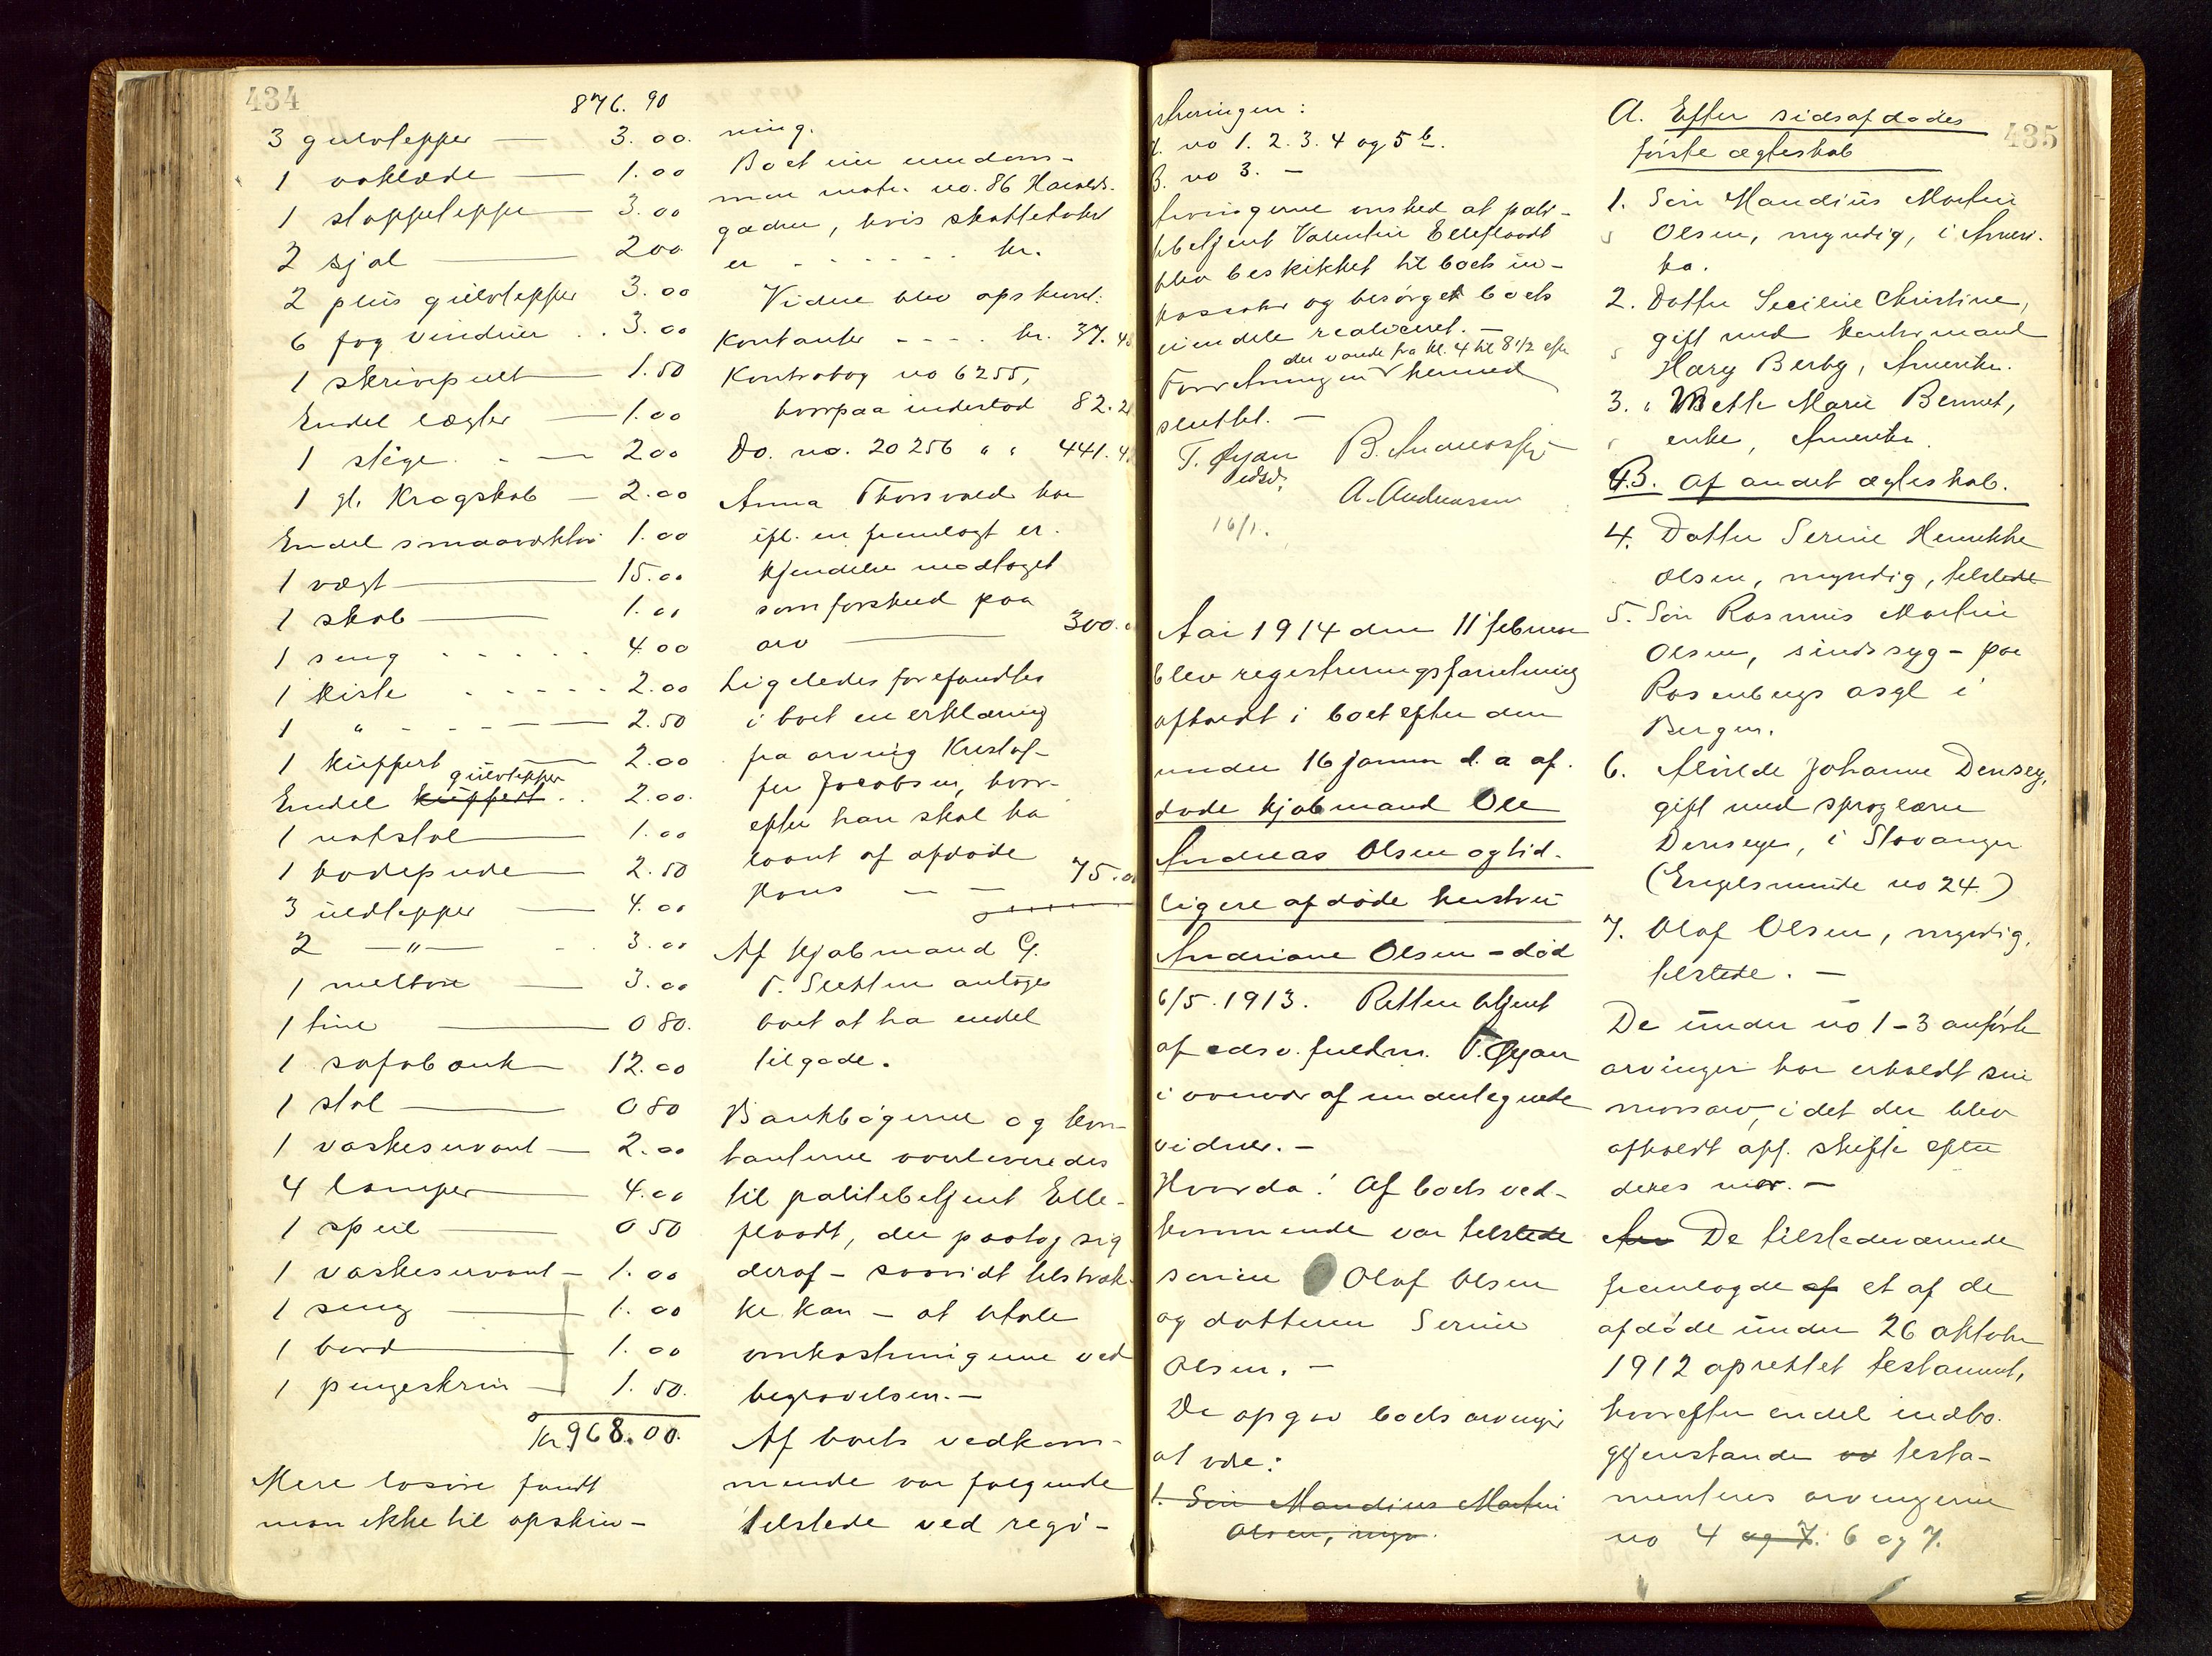 434
876. 90
3 gulvtepper — 3.00.
1 voklæde — 1.00
1 stoppeteppe — 3.00
2 sjal — 200
2 plus gulvtepper 3.00
6 fag vinduer . . 3.00
1 skrivepult — 1.50
Endel lægter — 1.00
1 stige . - — 200
1 gl. Kragskab — 2.00
Endel smaaverktøi 1.00
1 vægt — 15.00
1 skab — 1.00
1 seng . . . . . 400
1 kiste . . . . . 2.00
1 " - - - — 2.50
1 kuffert — 2.00
gulvtepper
Endel kuffert . . 2.00.
1 natstol — 1.00
1 hodepude — 2.50
3 uldtepper — 4.00
2 —"— - . 3.00
1 — 3.00
1 tine — 0 80.
1 sofabænk — 12.00
1 stol — 0 80
1 vaskeservant — 2.00
4 lamper — 4.00
1 speil — 0 50
1 vaskeservant — 1.00
1 seng — 1.00
1 bord — 1.00
1 pengeskrin — 1.50.
Kr. 968.00.
Mere løsøre fandt
man ikke til opskriv-
ning.
Boet eier eiendom-
men matr. no. 86 Haralds-
gaden, hvis skattetakst
er - - - - - - kr.
Videre blev opskrevet:
Kontanter - - - . kr. 37.
Kontrabog no 6255,
hvorpaa indestod 82.
Do. no. 20256 " " 441.
Anna Thorsvald har
ifl. en fremlagt er-
kjendelse modtaget
som forskud paa
arv — 300.
Ligeledes forefandtes
i boet en erklæring
fra arving Kristof-
fer Jacobsen, hvor-
efter han skal ha
laant af afdøde
Kons — — 75.
Af kjøbmand G.
T. Sletten antages
boet at ha endel
tilgode.
Bankbøgerne og kon-
tanterne overleveredes
til politibetjent Elle-
flaadt, der paatog sig
deraf - saavidt tilstræk-
ke kan - at betale
omkostningerne ved
begravelsen. —
Af boets vedkom-
mende var følgende
tilstede ved regi-
streringen:
A. no 1. 2. 3. 4 og 5 b.
B. no 3. —
Arvingerne ønsked at poli-
tibetjent Valentin Elleflaadt
blev beskikket til boets in-
kassator og besørget boets
eiendele realiceret. —
der varede fra kl. 4 til 8 1/2 eftm
Forretningen hermed
sluttet. —
T. Gjan B. Andreassen
edsv.
A. Andreassen
16/1.
Aar 1914 den 11 februar
blev registreringsforretning
afholdt i boet efter den
under 16 januar d. a. af-
døde kjøbmand Ole
Andreas Olsen og tid-
ligere afdøde hustru
Andriane Olsen - død
6/5. 1913. Retten betjent
af edsv. fuldm. T. Gjan
i overvær af undertegnede
vidner. —
Hvorda: Af boets ved-
kommende var tilstede
sønnen Olaf Olsen
og datteren Serine
Olsen. —
De opgav boets arvinger
at være:
1. Søn Maudius Martin
Olsen, myn.
435
A. Efter sidsafdødes
første ægteskab
1. Søn Maudius Martin
Olsen, myndig, i Ameri-
ka.
2. Datter Secilie Christine,
gift med kontormand
Harry Berby, Amerika.
3. " Bette Marie Bennet,
enke, Amerika.
B. af andet ægteskab.
4. Datter Serine Henrikke
Olsen, myndig, tilstede
5. Søn Rasmus Martin
Olsen, sindssyg - paa
Rosenbergs asyl i
Bergen.
6. Alvilde Johanne Denseg,
gift med sproglærer
Denseyer, i Stavanger
(Engelsminde no 24.)
7. Olaf Olsen, myndig,
tilstede. —
De under no 1-3 anførte
arvinger har erholdt sin
morsarv, idet der blev
afholdt off. skifte efter
deres mor. —
Arv De tilstedeværende
fremlagde af et af de
afdøde under 26 oktober
1912 oprettet testament,
hvorefter endel indbo-
gjenstande testa-
menteres arvingerne
no 4 og 7. 6 og 7.